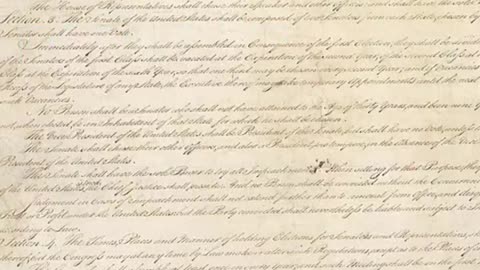 The House of Representatives shall chuse their Speaker and other Officers; and shall have the sole Power
Section. 3. The Senate of the United States shall be composed of two Senators from each State, chosen by
Senator shall have one Vote.
Immediately after they shall be assembled in Consequence of the first Election, they shall be divided
of the Senators of the first Class shall be vacated at the Expiration of the second Year, of the second Class at
Class at the Expiration of the sixth Year, so that one third may be chosen every second Year; and if Vacancies
Recess of the Legislature of any State, the Executive thereof may make temporary Appointments until the next
such Vacancies.
No Person shall be a Senator who shall not have attained to the Age of thirty Years, and been nine Years
not, when elected, be an Inhabitant of that State for which he shall be chosen.
The Vice President of the United States shall be President of the Senate, but shall have no Vote, unless
The Senate shall chuse their other Officers, and also a President pro tempore, in the Absence of the Vice
President of the United States.
The Senate shall have the sole Power to try all Impeachments. When sitting for that Purpose, they
of the United States, the Chief Justice shall preside: And no Person shall be convicted without the Concurrence
Judgment in Cases of Impeachment shall not extend further than to removal from Office, and disqualif
or Profit under the United States: but the Party convicted shall nevertheless be liable and subject to
according to Law.
Section. 4. The Times, Places and Manner of holding Elections for Senators and Representatives, shall
thereof; but the Congress may at any time by Law make or alter such Regulations, except as to the Places of